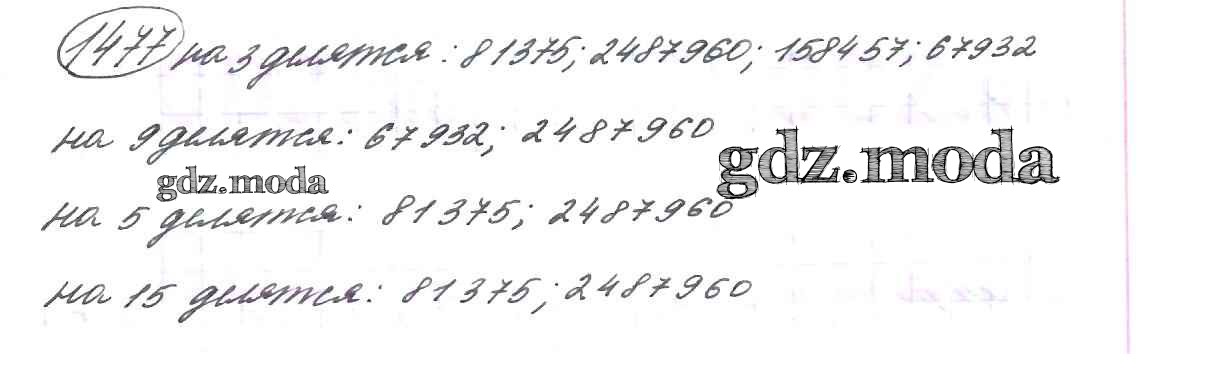 1477 на 3 делятся: 81375; 2487960; 158457; 67932
на 9 делятся: 67932; 2487960
gdz.moda
gdz.moda
на 5 делятся: 81375; 2487960
на 15 делятся: 81375; 2487960